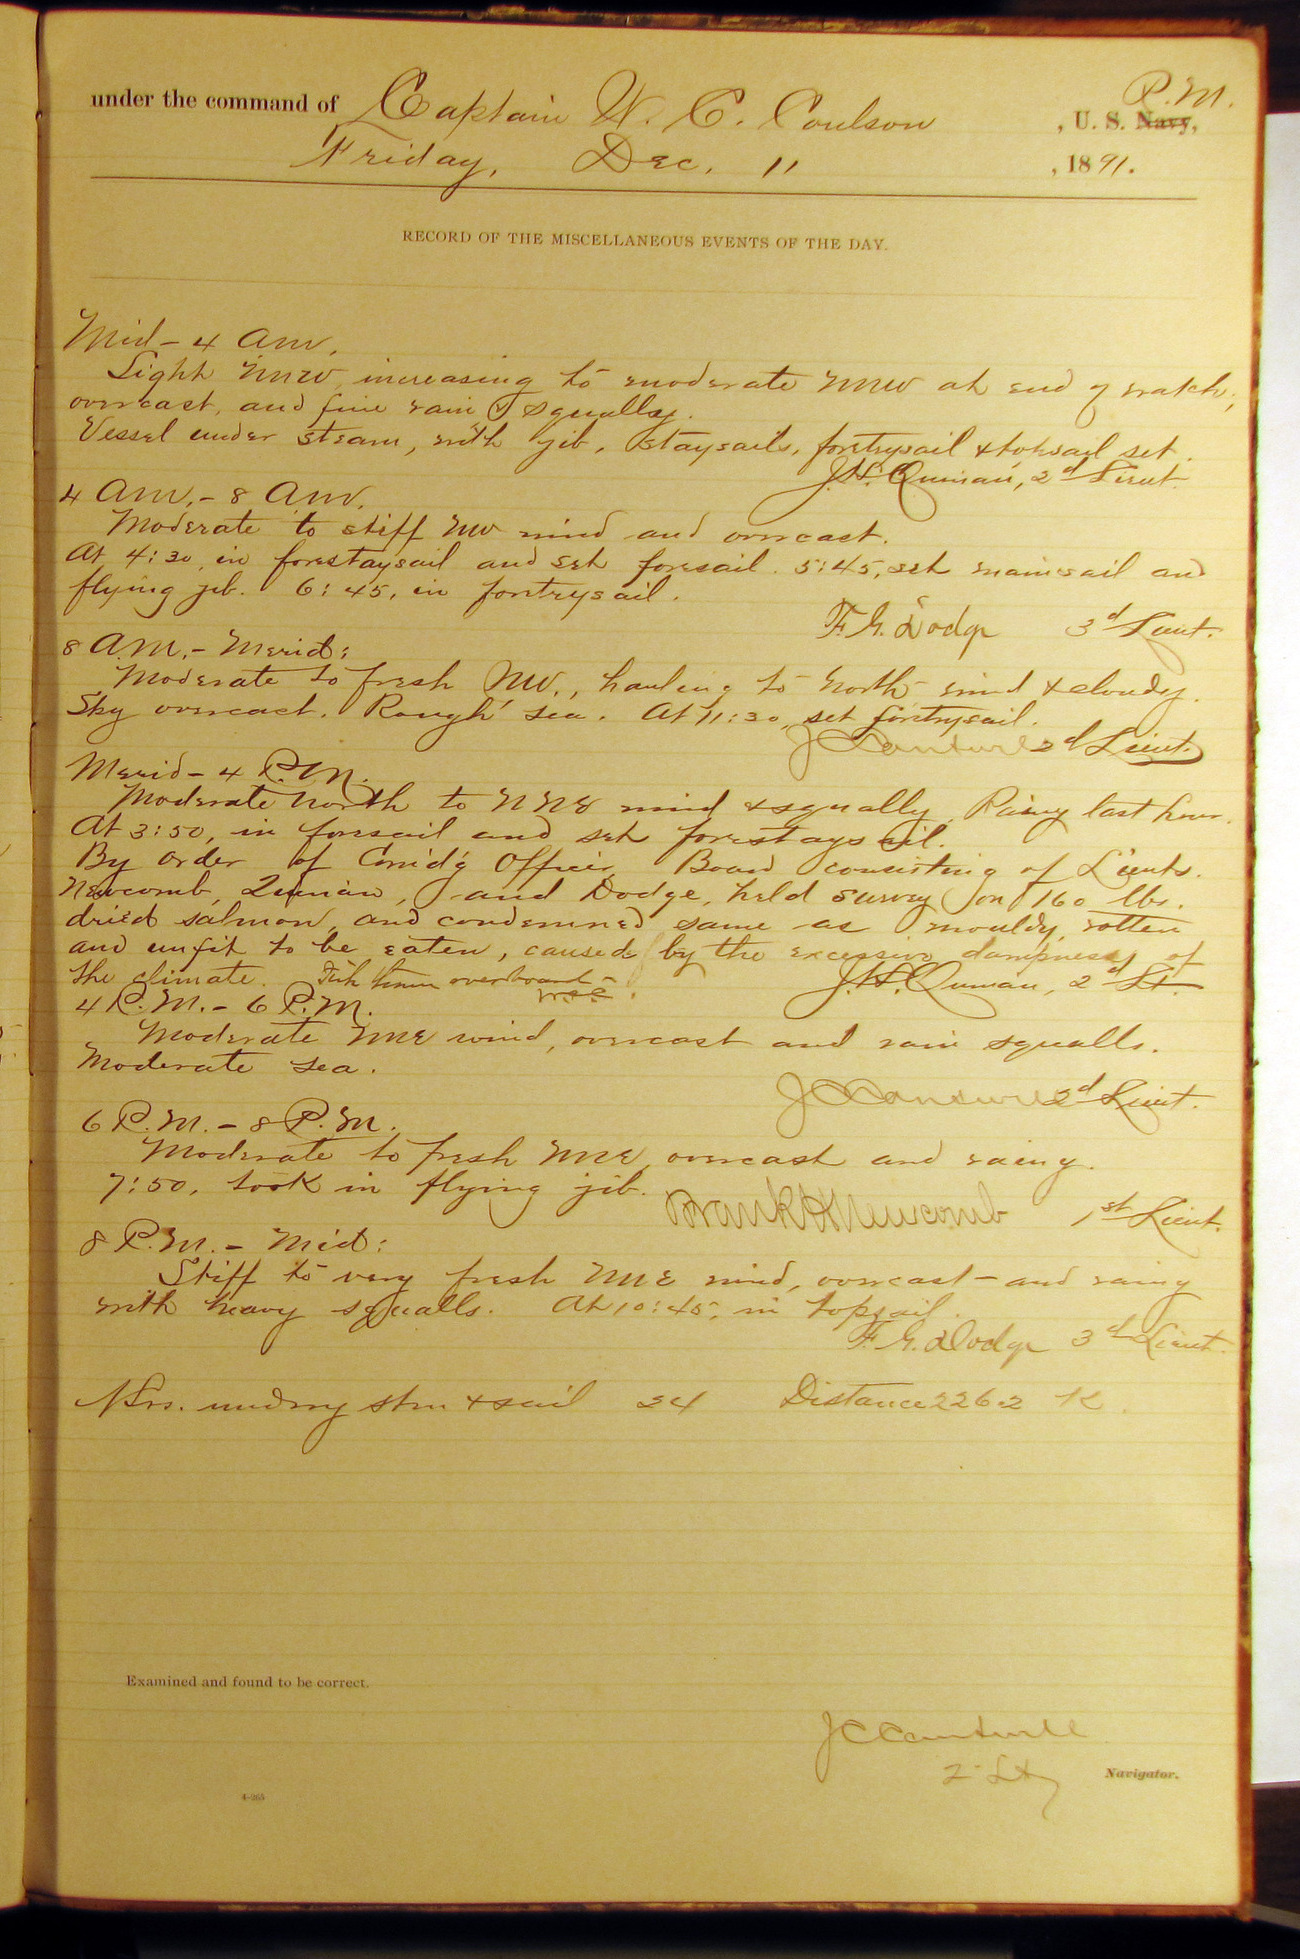 under the command of Captain W. C. Coulson, U. S. Navy, R.M.
Friday, Dec. 11, 1891.
RECORD OF THE MISCELLANEOUS EVENTS OF THE DAY.
Mid - 4 AM.
Light NNW increasing to moderate NNW at end of watch;
overcast, and fine rain & squally.
Vessel under steam, with jib, staysails, foretrysail & topsail set.
J.H. Quinan, 2d Lieut.
4 AM. - 8 AM.
Moderate to stiff NW wind and overcast.
At 4:30, in forestaysail and set foresail. 5:45, set mainsail and
flying jib. 6:45, in foretrysail.
F. G. Dodge 3d Lieut.
8 A.M. - Merid:
Moderate to fresh NW., hauling to North wind & cloudy.
Sky overcast. Rough sea. At 11:30, set foretrysail.
J C Cantwell 2d Lieut.
Merid - 4 P.M.
Moderate north to NNE wind & squally. Rainy last hour.
At 3:50, in foresail and set forestaysail.
By order of Comd'g Officer, Board consisting of Lieuts.
Newcomb, Quinan, and Dodge, held survey on 160 lbs.
dried salmon, and condemned same as mouldy, rotten
and unfit to be eaten, caused by the excessive dampness of
the climate. thrown overboard.
J.H. Quinan, 2d Lt.
4 P.M. - 6 P.M.
Moderate NNE wind, overcast and rain squalls.
Moderate sea.
J C Cantwell 2d Lieut.
6 P.M. - 8 P.M.
Moderate to fresh NNE, overcast and rainy.
7:50, took in flying jib.
Frank H Newcomb 1st Lieut.
8 P.M. - Mid:
Stiff to very fresh NNE wind, overcast and rainy
with heavy squalls. At 10:45, in topsail.
F. G. Dodge 3d Lieut.
Hrs. under stm & sail 24 Distance 226.2 K.
Examined and found to be correct.
J C Cantwell
2d Lt
Navigator.
4-265